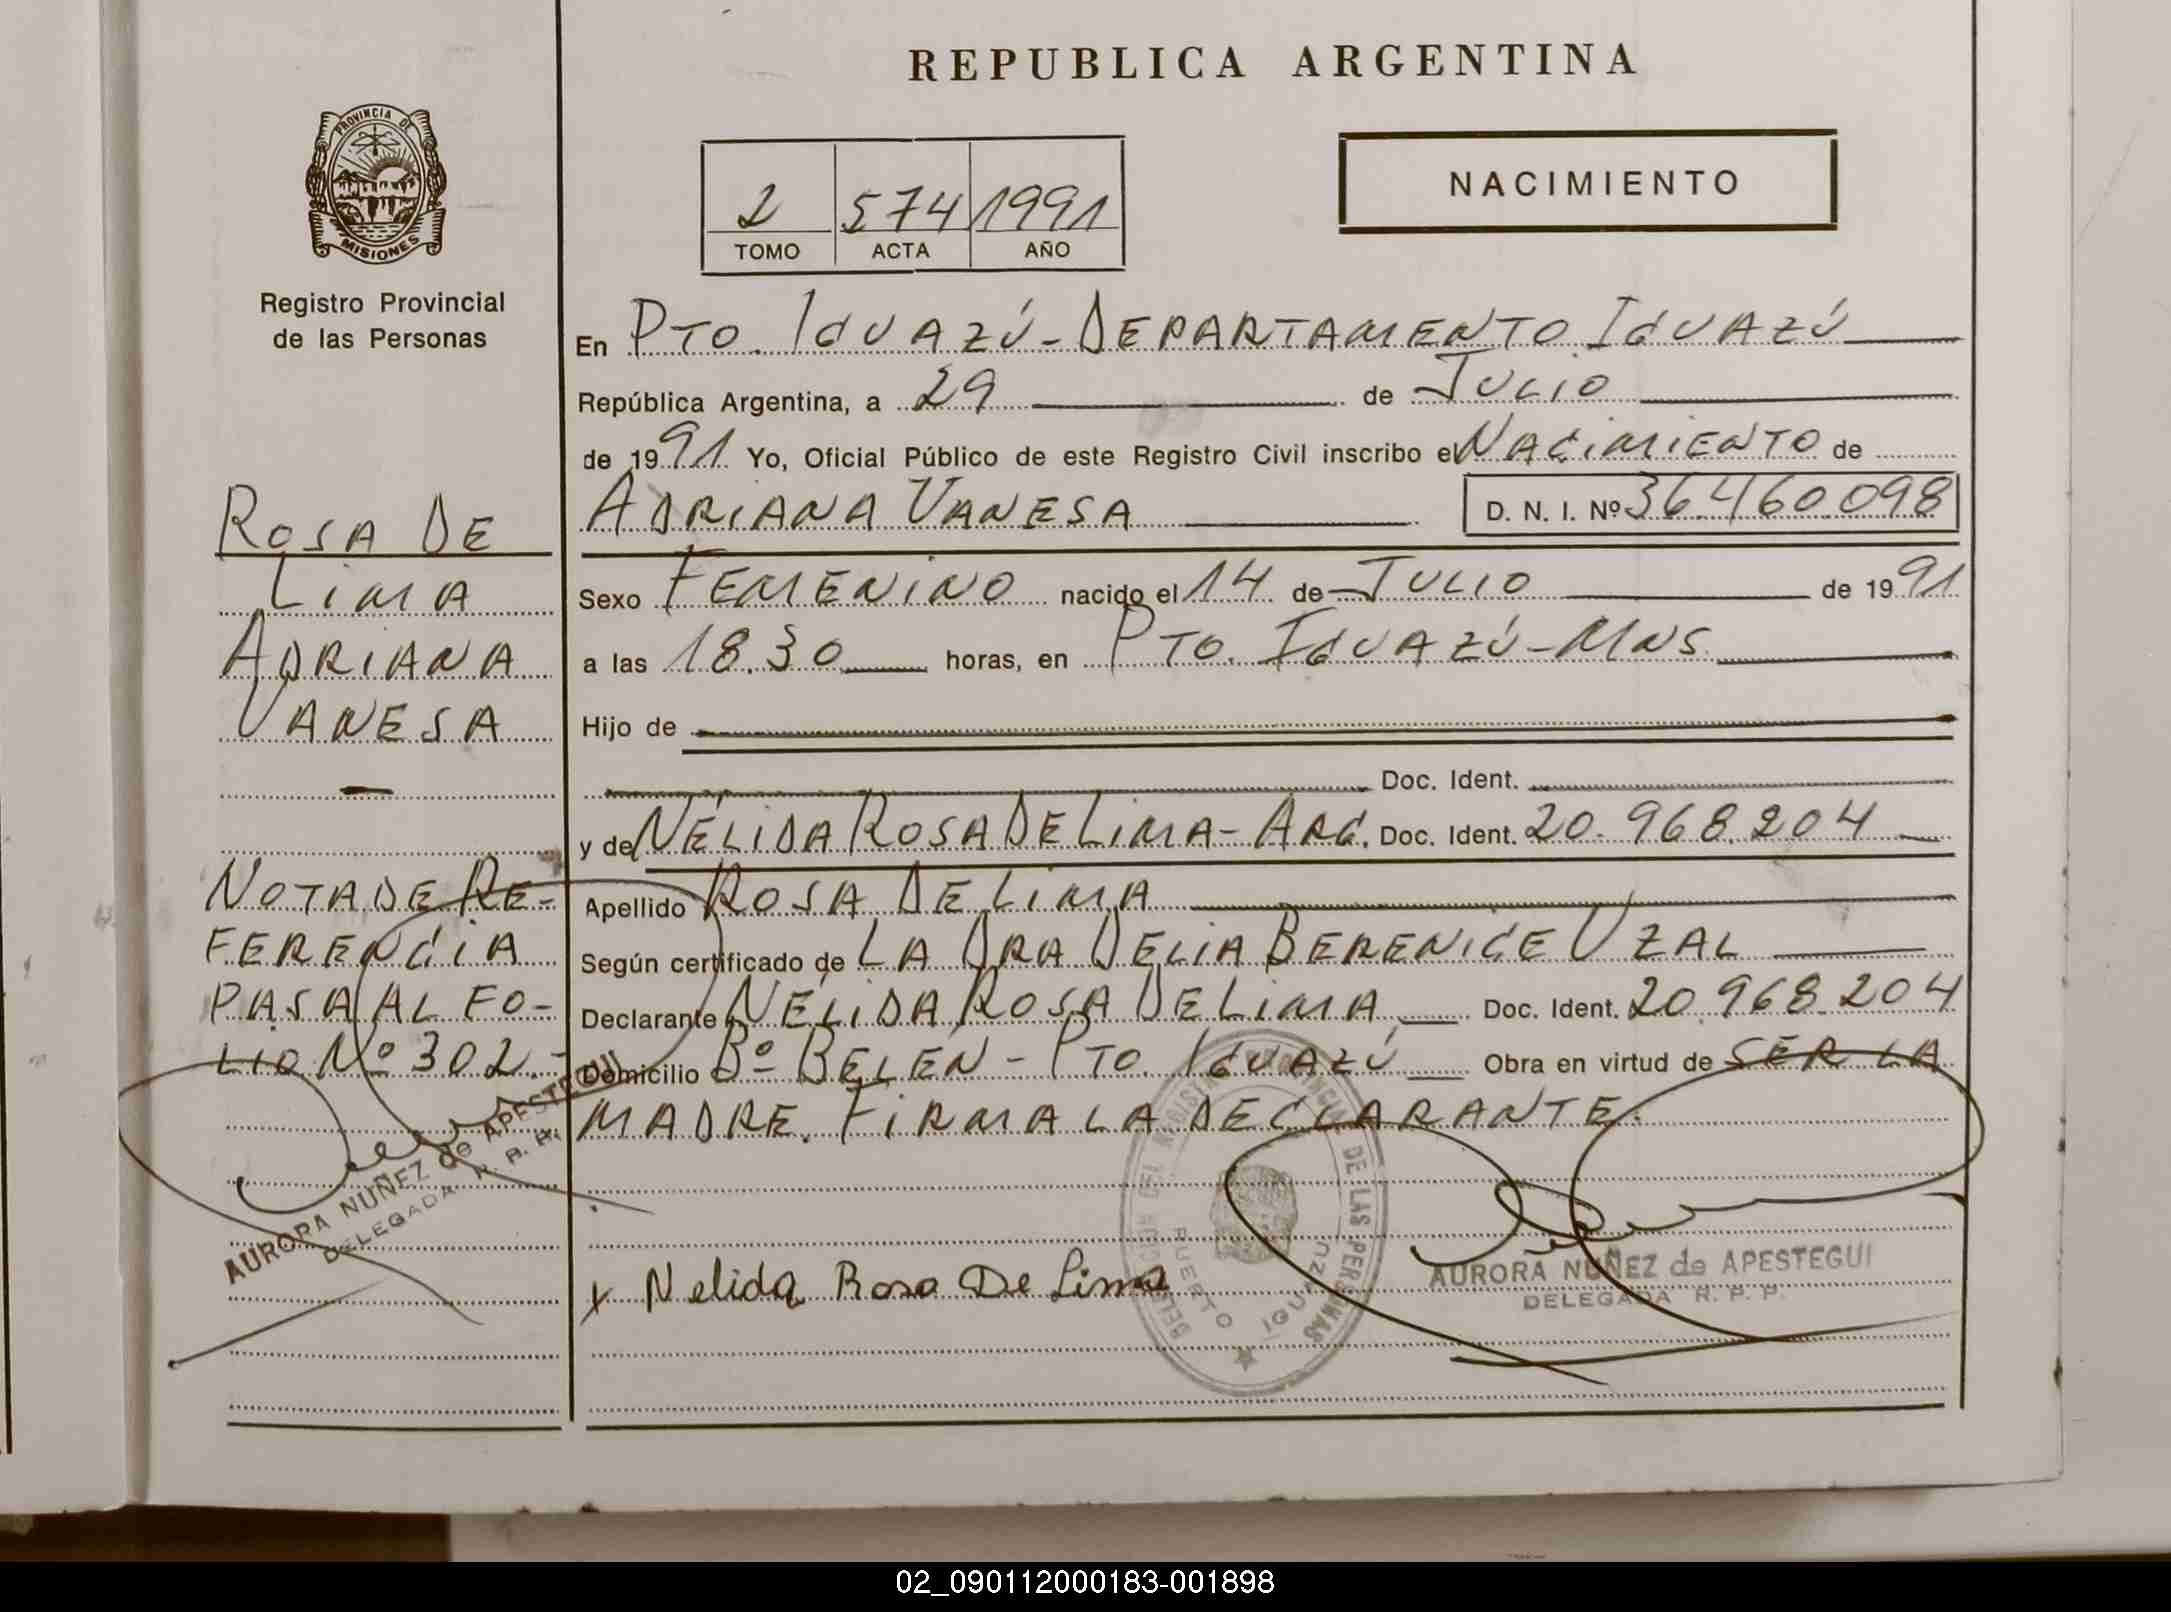 REPUBLICA ARGENTINA
PROVINCIA DE
MISIONES
Registro Provincial
de las Personas
2 574 1991
TOMO ACTA AÑO
NACIMIENTO
En PTO. IGUAZÚ - DEPARTAMENTO IGUAZÚ
República Argentina, a 29 de JULIO
de 1991 Yo, Oficial Público de este Registro Civil inscribo el NACIMIENTO de
ADRIANA VANESA D. N. I. Nº 36.460.098
Sexo FEMENINO nacido el 14 de JULIO de 1991
a las 18.30 horas, en PTO. IGUAZÚ - MNS.
Hijo de
Doc. Ident.
y de NÉLIDA ROSA DE LIMA - ARG. Doc. Ident. 20.968.204
Apellido ROSA DE LIMA
Según certificado de LA DRA DELIA BERENICE UZAL
Declarante NÉLIDA ROSA DE LIMA Doc. Ident. 20.968.204
Domicilio Bº BELEN - PTO. IGUAZÚ Obra en virtud de SER LA
MADRE. FIRMA LA DECLARANTE.
x Nelida Rosa De Lima
AURORA NUÑEZ de APESTEGUI
DELEGADA R. P. P.
PROVINCIAL DE LAS PERSONAS
PUERTO IGUAZU
ROSA DE
LIMA
ADRIANA
VANESA
NOTA DE RE-
FERENCIA
PASA AL FO-
LIO Nº 302.-
AURORA NUÑEZ de APESTEGUI
DELEGADA R. P. P.
02_090112000183-001898